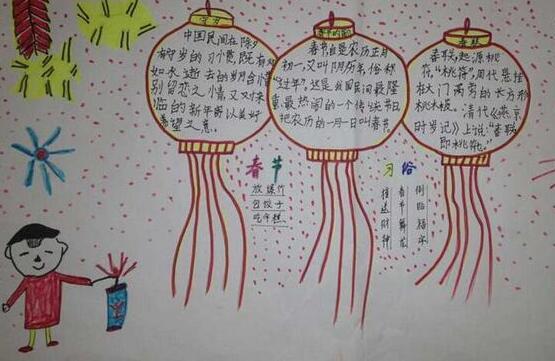 守岁
中国民间在除夕
有守岁的习惯,既有对
如水逝去的岁月含惜
别留恋之情又又对来
临的新年寄以美好
希望之意。
春节的由来
春节住是农历正月
初一,又叫阴历年,俗称
"过年"。这是我国民间最隆
重、最热闹的一个传统节日
把农历的一月一日叫春节。
春联
春联,起源桃
符。"桃符",周代悬挂
在大门两旁的长方形
桃木板。清代《燕京
时岁记》上说:"春联
即桃符。"
春节
放爆竹
包饺子
吃年糕
习俗
倒贴福字
春节舞龙
接送财神